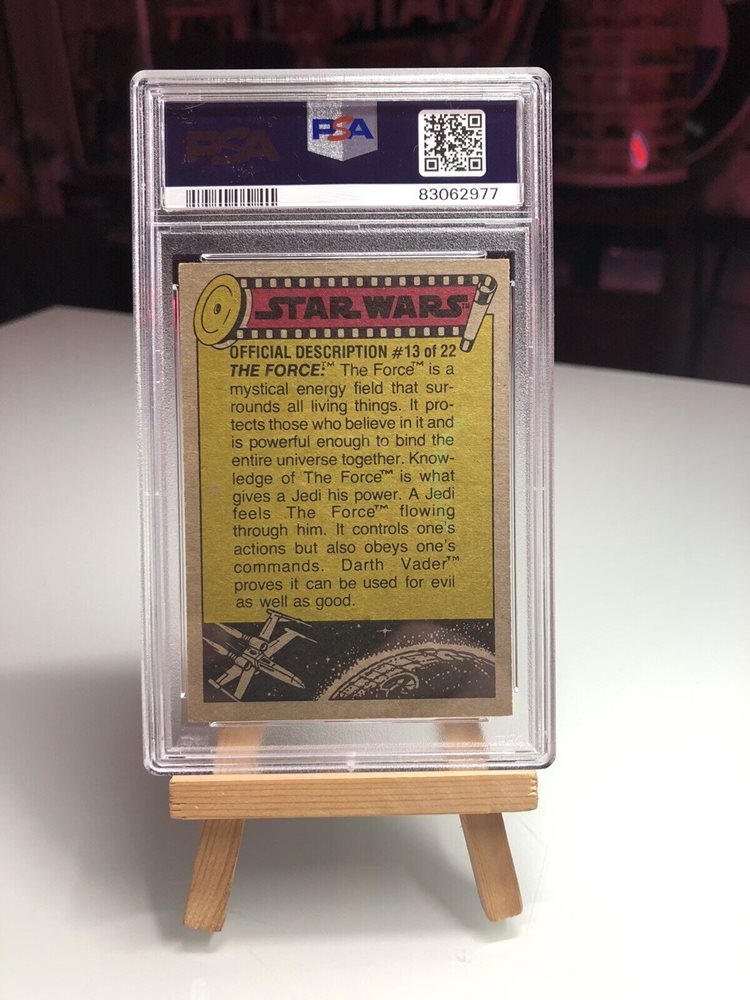 PSA
PSA
83062977
STAR WARS™
OFFICIAL DESCRIPTION #13 of 22
THE FORCE:™ The Force™ is a
mystical energy field that sur-
rounds all living things. It pro-
tects those who believe in it and
is powerful enough to bind the
entire universe together. Know-
ledge of The Force™ is what
gives a Jedi his power. A Jedi
feels The Force™ flowing
through him. It controls one's
actions but also obeys one's
commands. Darth Vader™
proves it can be used for evil
as well as good.